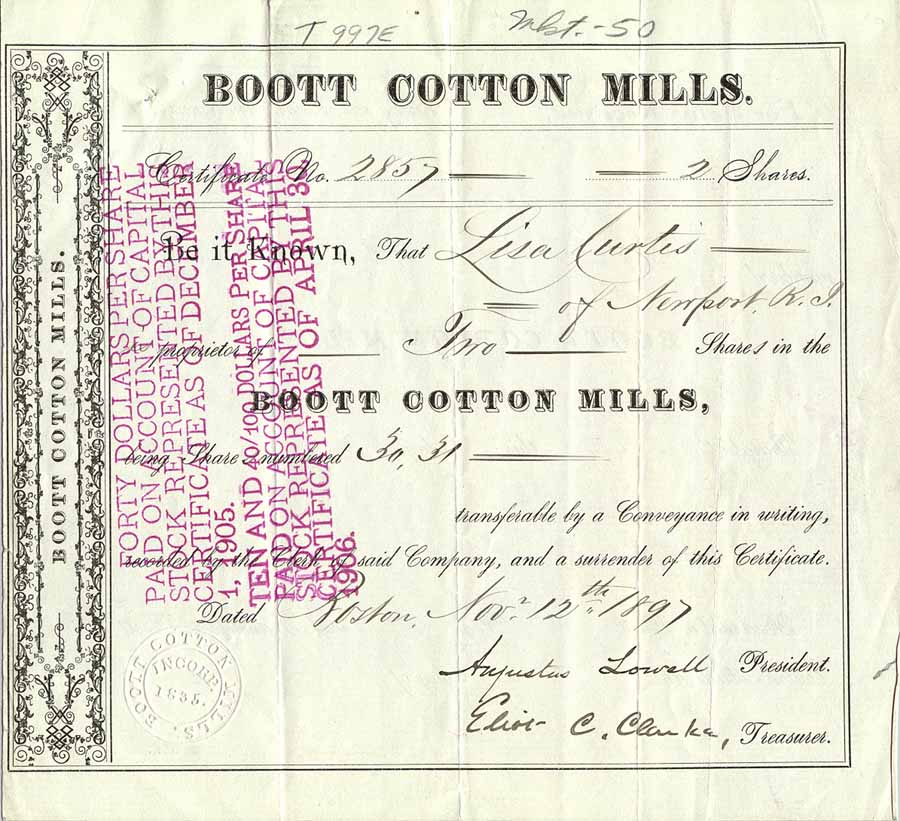 T 997E
BOOTT COTTON MILLS.
Certificate No. 2857 2 Shares.
Be it Known, That Lisa Curtis
of Newport, R. I.
is proprietor of Two Shares in the
BOOTT COTTON MILLS,
being Shares numbered 30, 31
transferable by a Conveyance in writing,
recorded by the Clerk of said Company, and a surrender of this Certificate.
Dated Boston, Nov. 12th 1897
Augustus Lowell President.
Eliot C. Clarke, Treasurer.
BOOTT COTTON MILLS.
FORTY DOLLARS PER SHARE
PAID ON ACCOUNT OF CAPITAL
STOCK REPRESENTED BY THIS
CERTIFICATE AS OF DECEMBER
1, 1905.
TEN AND 40/100 DOLLARS PER SHARE
PAID ON ACCOUNT OF CAPITAL
STOCK REPRESENTED BY THIS
CERTIFICATE AS OF APRIL 3,
1906.
BOOTT COTTON MILLS.
INCORP.
1835.